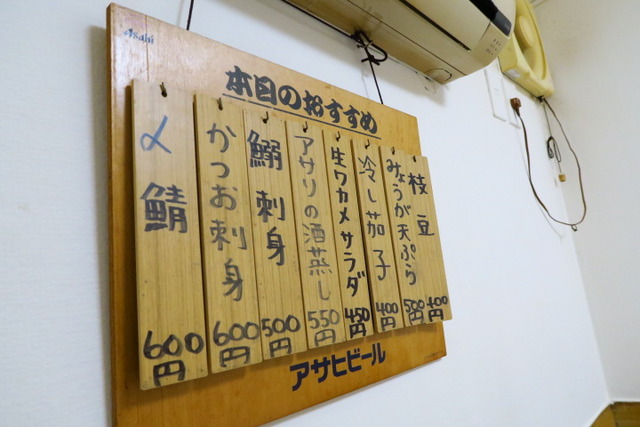 Asahi
本日のおすすめ
枝豆
400
みょうが天ぷら
500円
冷し茄子
400円
生ワカメサラダ
450円
アサリの酒蒸し
550円
鰯刺身
500円
かつお刺身
600円
〆鯖
600円
アサヒビール